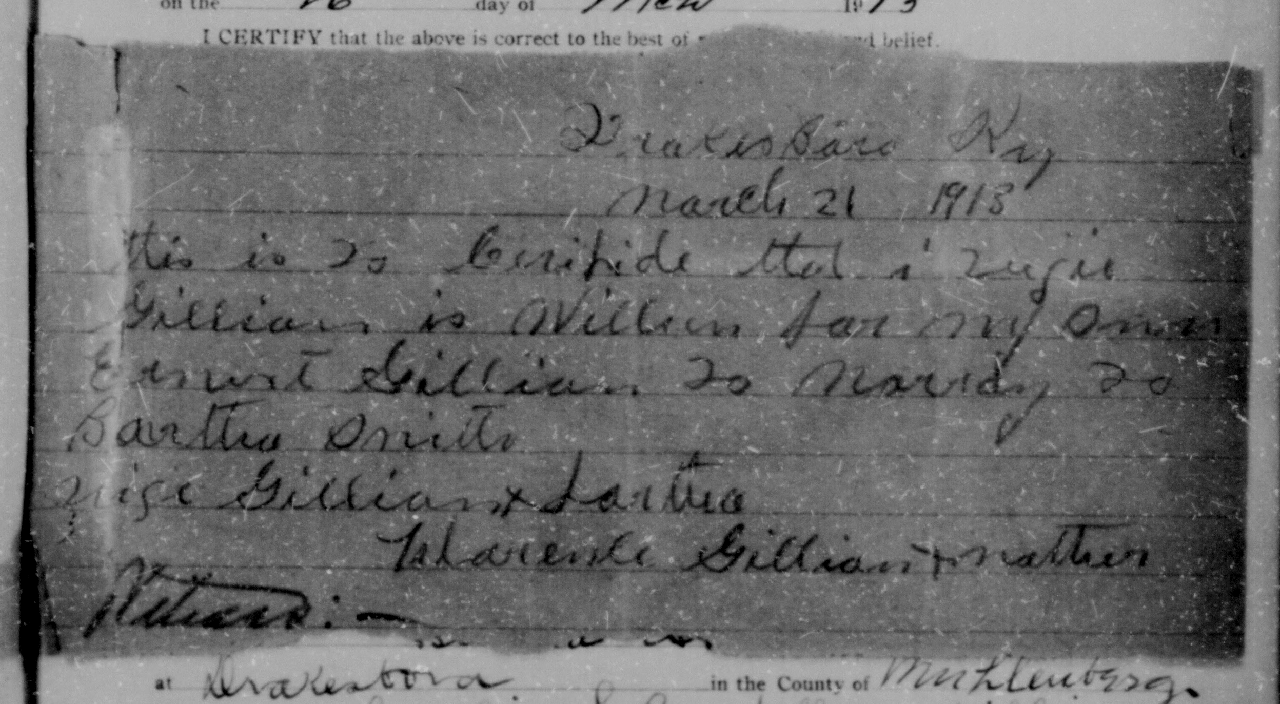 on the 26 day of Mch 1913
I CERTIFY that the above is correct to the best of belief.
Drakesboro Ky
March 21 1913
this is to Cerifide that i
Gillian is Willien for my Sonn
Ernest Gillian to Marray to
Bartha Smith
Gillian x farther
Gillian + mather
at Drakesboro in the County of Muhlenberg.